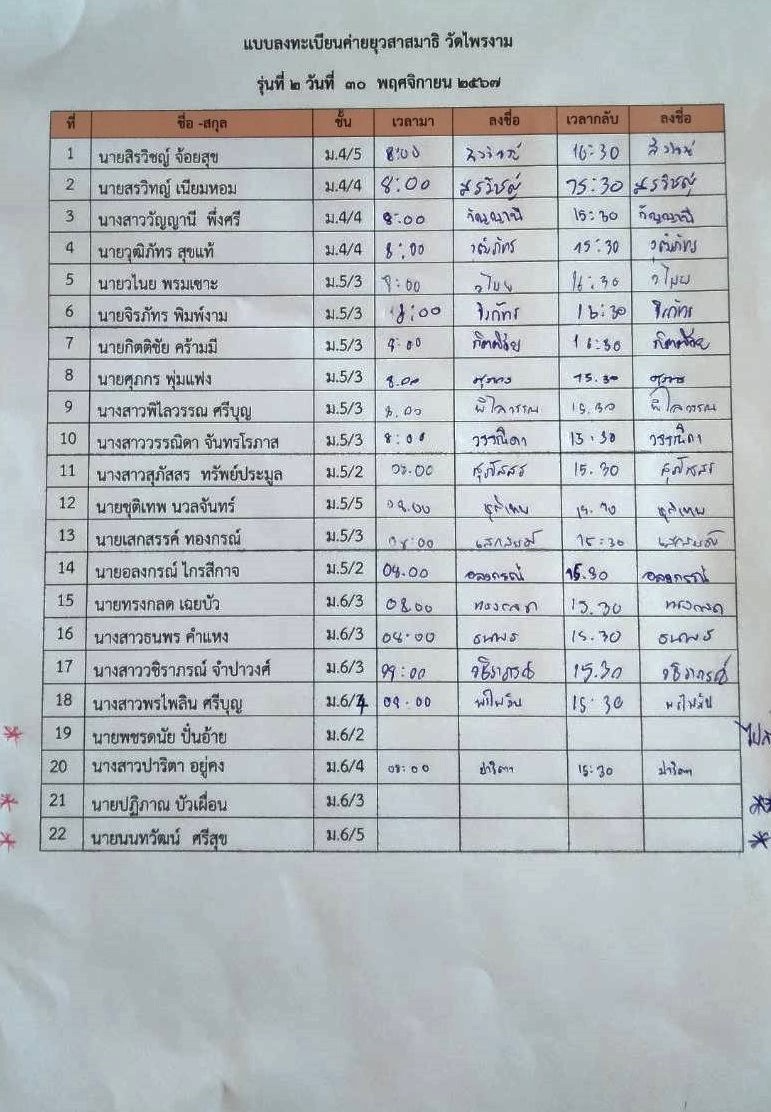 แบบลงทะเบียนค่ายยุวสาสมาธิ วัดไพรงาม
รุ่นที่ ๒ วันที่ ๓๐ พฤศจิกายน ๒๕๖๗
ที่ ชื่อ -สกุล ชั้น เวลามา ลงชื่อ เวลากลับ ลงชื่อ
1 นายสิรวิชญ์ จ้อยสุข ม.4/5 8:00 16:30
2 นายสรวิทญ์ เนียมหอม ม.4/4 8:00 สรวิชญ์ 15:30 สรวิชญ์
3 นางสาววัญญานี พึ่งศรี ม.4/4 8:00 15:30
4 นายวุฒิภัทร สุขแท้ ม.4/4 8:00 วุฒิภัทร 15:30 วุฒิภัทร
5 นายวไนย พรมเซาะ ม.5/3 8:00 วไนย 16:30 วไนย
6 นายจิรภัทร พิมพ์งาม ม.5/3 18:00 จิรภัทร 16:30 จิรภัทร
7 นายกิตติชัย คร้ามมี ม.5/3 8:00 กิตติชัย 16:30 กิตติชัย
8 นายศุภกร พุ่มแฟง ม.5/3 8.00 ศุภกร 15.30 ศุภกร
9 นางสาวพิไลวรรณ ศรีบุญ ม.5/3 8.00 พิไลวรรณ 15.30 พิไลวรรณ
10 นางสาววรรณิดา จันทรโรภาส ม.5/3 8:00 วรรณิดา 15:30 วรรณิดา
11 นางสาวสุภัสสร ทรัพย์ประมูล ม.5/2 08.00 สุภัสสร 15.30 สุภัสสร
12 นายชุติเทพ นวลจันทร์ ม.5/5 08.00 ชุติเทพ 15.30 ชุติเทพ
13 นายเสกสรรค์ ทองกรณ์ ม.5/3 08:00 เสกสรรค์ 15:30 เสกสรรค์
14 นายอลงกรณ์ ไกรสีกาจ ม.5/2 08.00 อลงกรณ์ 15.30 อลงกรณ์
15 นายทรงกลด เฉยบัว ม.6/3 08.00 ทรงกลด 15.30 ทรงกลด
16 นางสาวธนพร คำแหง ม.6/3 08:00 ธนพร 15.30 ธนพร
17 นางสาววชิราภรณ์ จำปาวงศ์ ม.6/3 08:00 วชิราภรณ์ 15.30 วชิราภรณ์
18 นางสาวพรไพลิน ศรีบุญ ม.6/4 08.00 พรไพลิน 15:30 พรไพลิน
19 นายพชรดนัย ปั่นอ้าย ม.6/2
20 นางสาวปาริตา อยู่คง ม.6/4 08:00 ปาริตา 15:30 ปาริตา
21 นายปฏิภาณ บัวเผื่อน ม.6/3
22 นายนนทวัฒน์ ศรีสุข ม.6/5